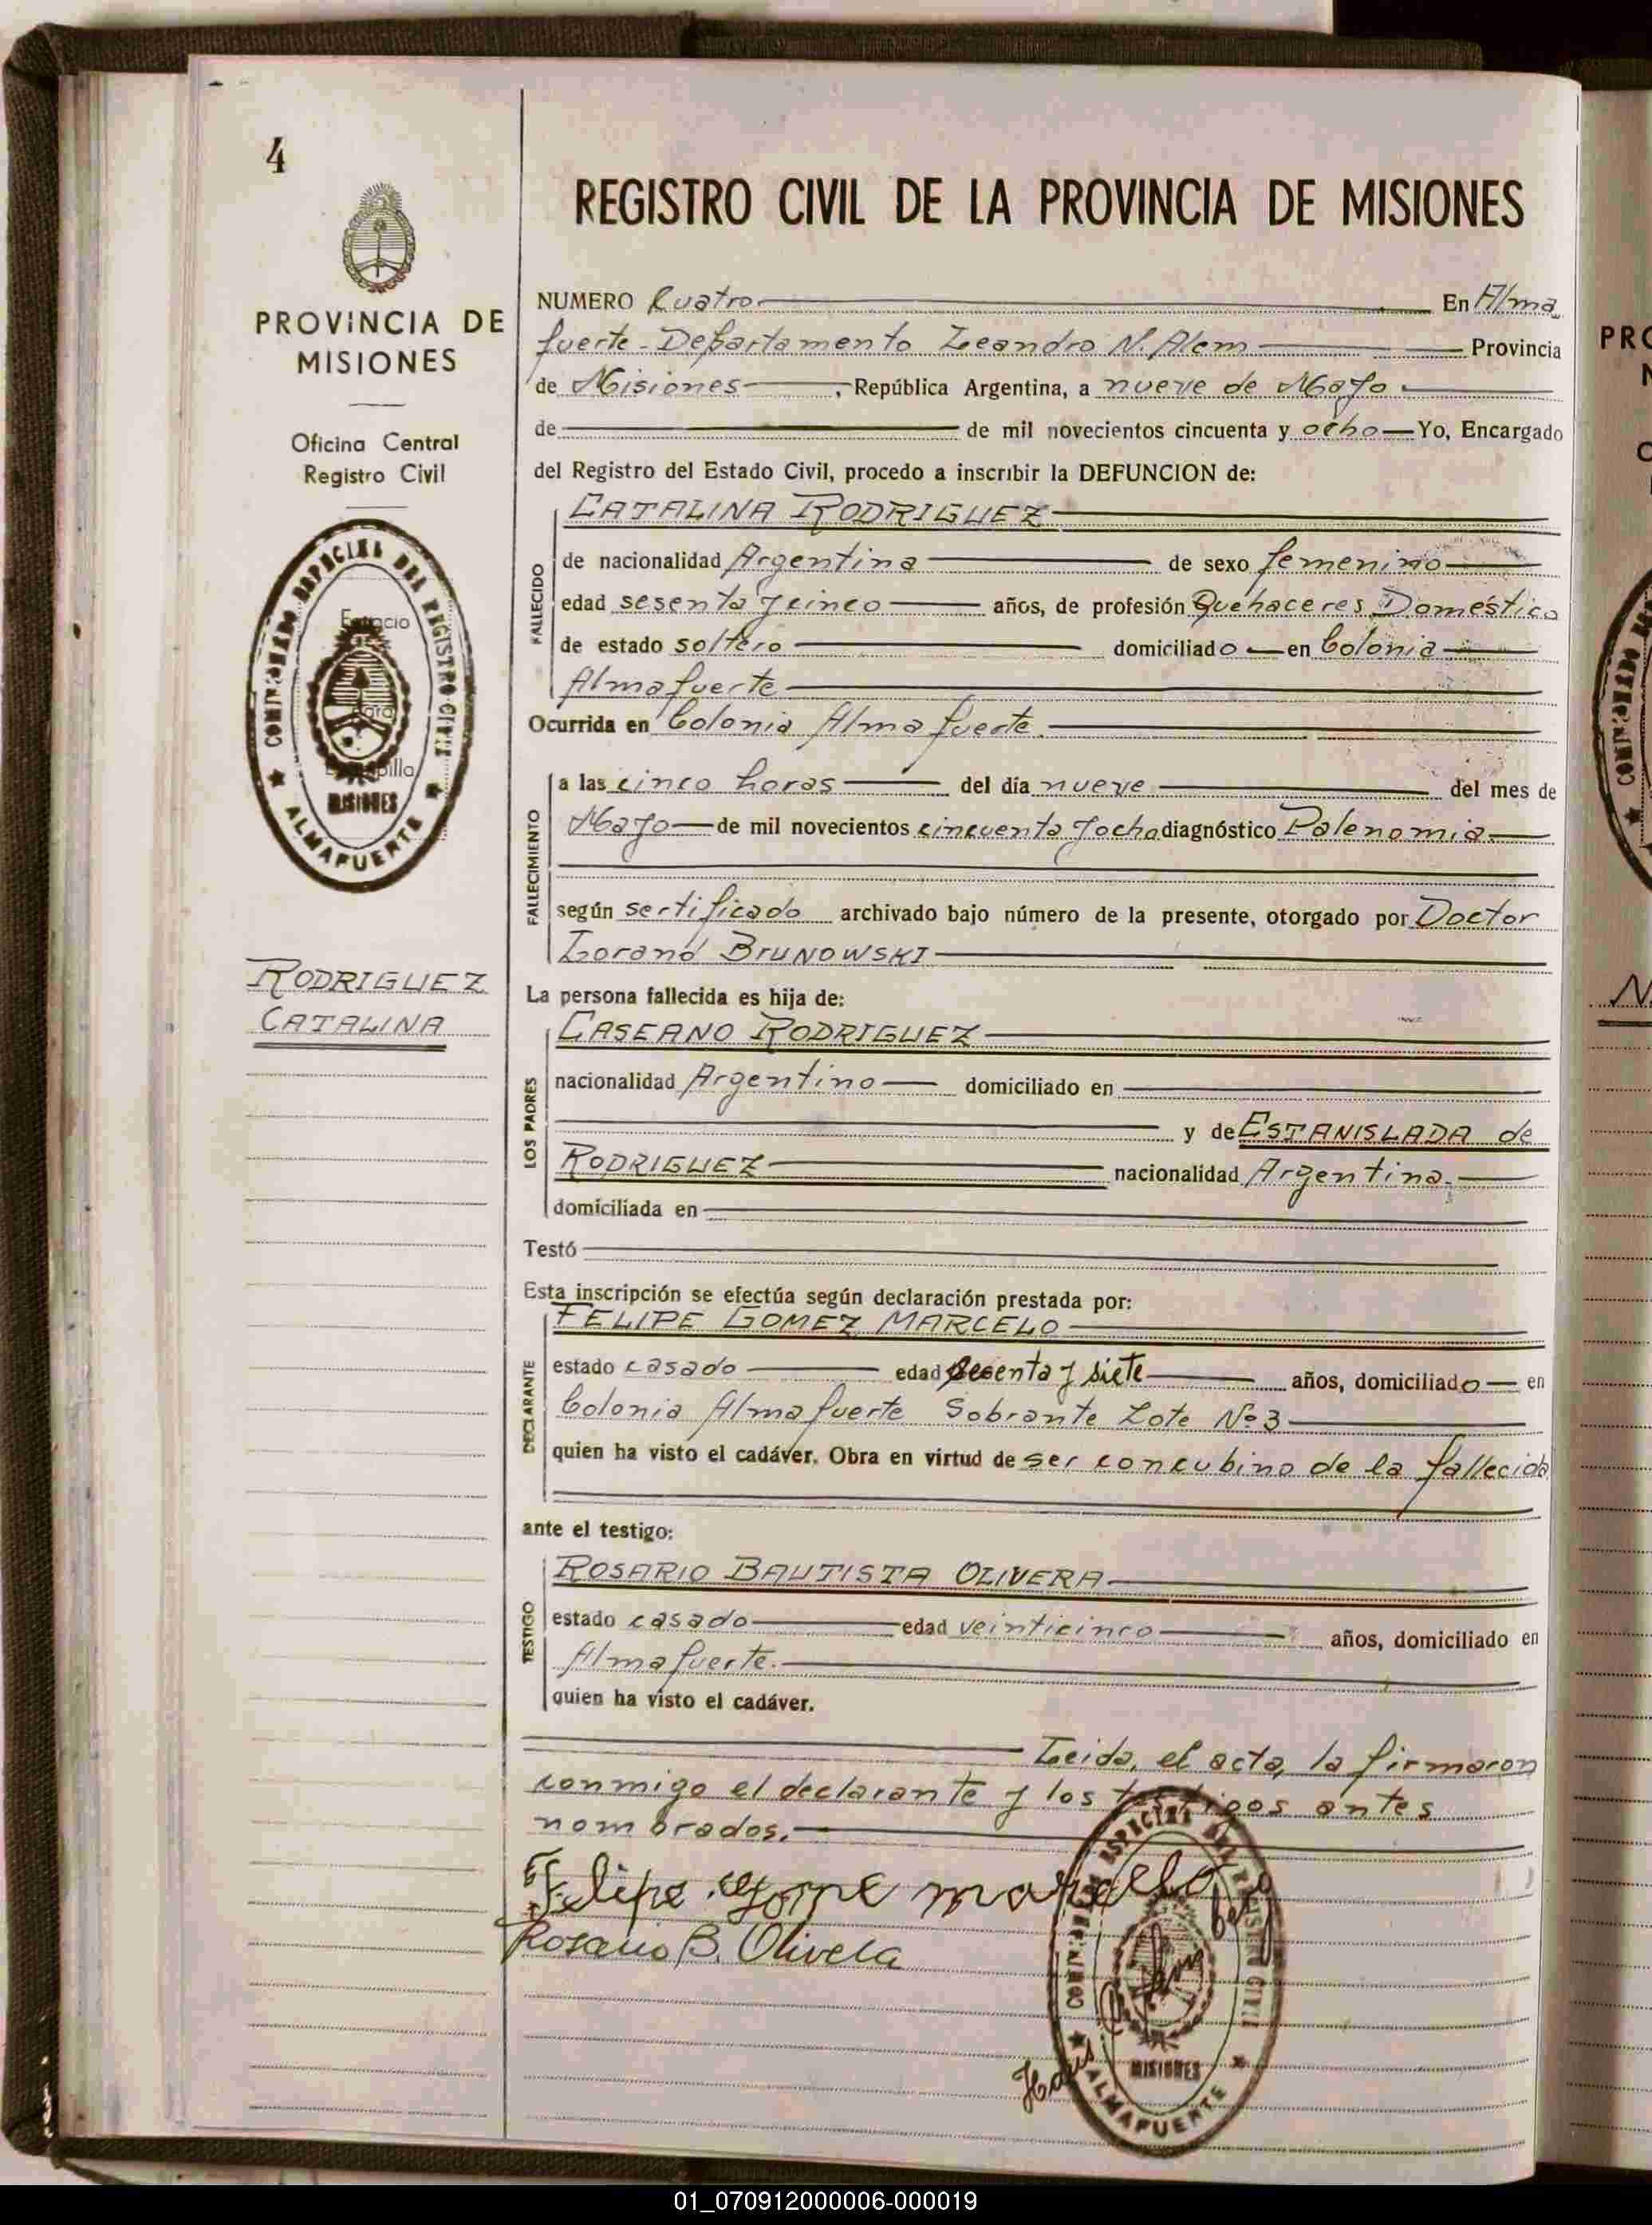 4
PROVINCIA DE
MISIONES
Oficina Central
Registro Civil
COMISIONADO ESPECIAL DEL REGISTRO CIVIL
Espacio
para
Estampilla
MISIONES
ALMAFUERTE
RODRIGUEZ
CATALINA
REGISTRO CIVIL DE LA PROVINCIA DE MISIONES
NUMERO Cuatro En Alma
fuerte - Departamento Leandro N. Alem Provincia
de Misiones, República Argentina, a nueve de Mayo
de de mil novecientos cincuenta y ocho Yo, Encargado
del Registro del Estado Civil, procedo a inscribir la DEFUNCION de:
CATALINA RODRIGUEZ
FALLECIDO
de nacionalidad Argentina de sexo femenino
edad sesenta y cinco años, de profesión Quehaceres Domestico
de estado soltero domiciliado en Colonia
Almafuerte
Ocurrida en Colonia Almafuerte
FALLECIMIENTO
a las cinco horas del día nueve del mes de
Mayo de mil novecientos cincuenta y ocho diagnóstico Palenomia
según sertificado archivado bajo número de la presente, otorgado por Doctor
Lorand BRUNOWSKI
La persona fallecida es hija de:
LOS PADRES
CASEANO RODRIGUEZ
nacionalidad Argentino domiciliado en
y de ESTANISLADA de
RODRIGUEZ nacionalidad Argentina.
domiciliada en
Testó
Esta inscripción se efectúa según declaración prestada por:
DECLARANTE
FELIPE GOMEZ MARCELO
estado casado edad sesenta y siete años, domiciliado en
Colonia Almafuerte Sobrante Lote Nº 3
quien ha visto el cadáver. Obra en virtud de ser concubino de la fallecida
ante el testigo:
TESTIGO
ROSARIO BAUTISTA OLIVERA
estado casado edad veinticinco años, domiciliado en
Almafuerte.
quien ha visto el cadáver.
Leida, el acta, la firmaron
conmigo el declarante y los testigos antes
nombrados.
Felipe gome marcelo
Rosario B. Olivera
COMISIONADO ESPECIAL DEL REGISTRO CIVIL
MISIONES
ALMAFUERTE
01_070912000006-000019